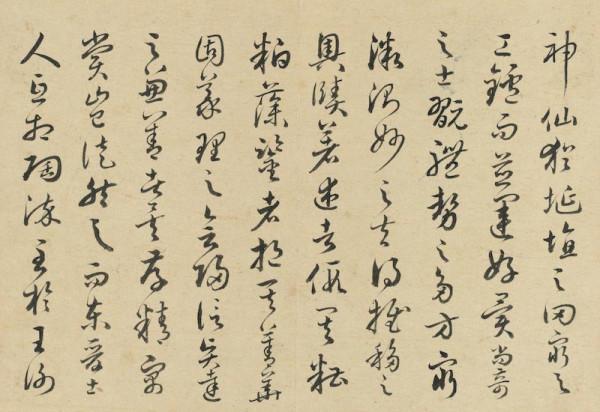 神仙猶埏埴之罔窮与
工鑪而並運好異尚奇
之士翫體勢之多方窮
微測妙之夫得推移之
奧賾著述者假其糟
粕藻鑒者挹其菁華
固義理之會歸信賢達
之兼善者矣存精寓
賞豈徒然与而東晉士
人互相陶淬至於王謝